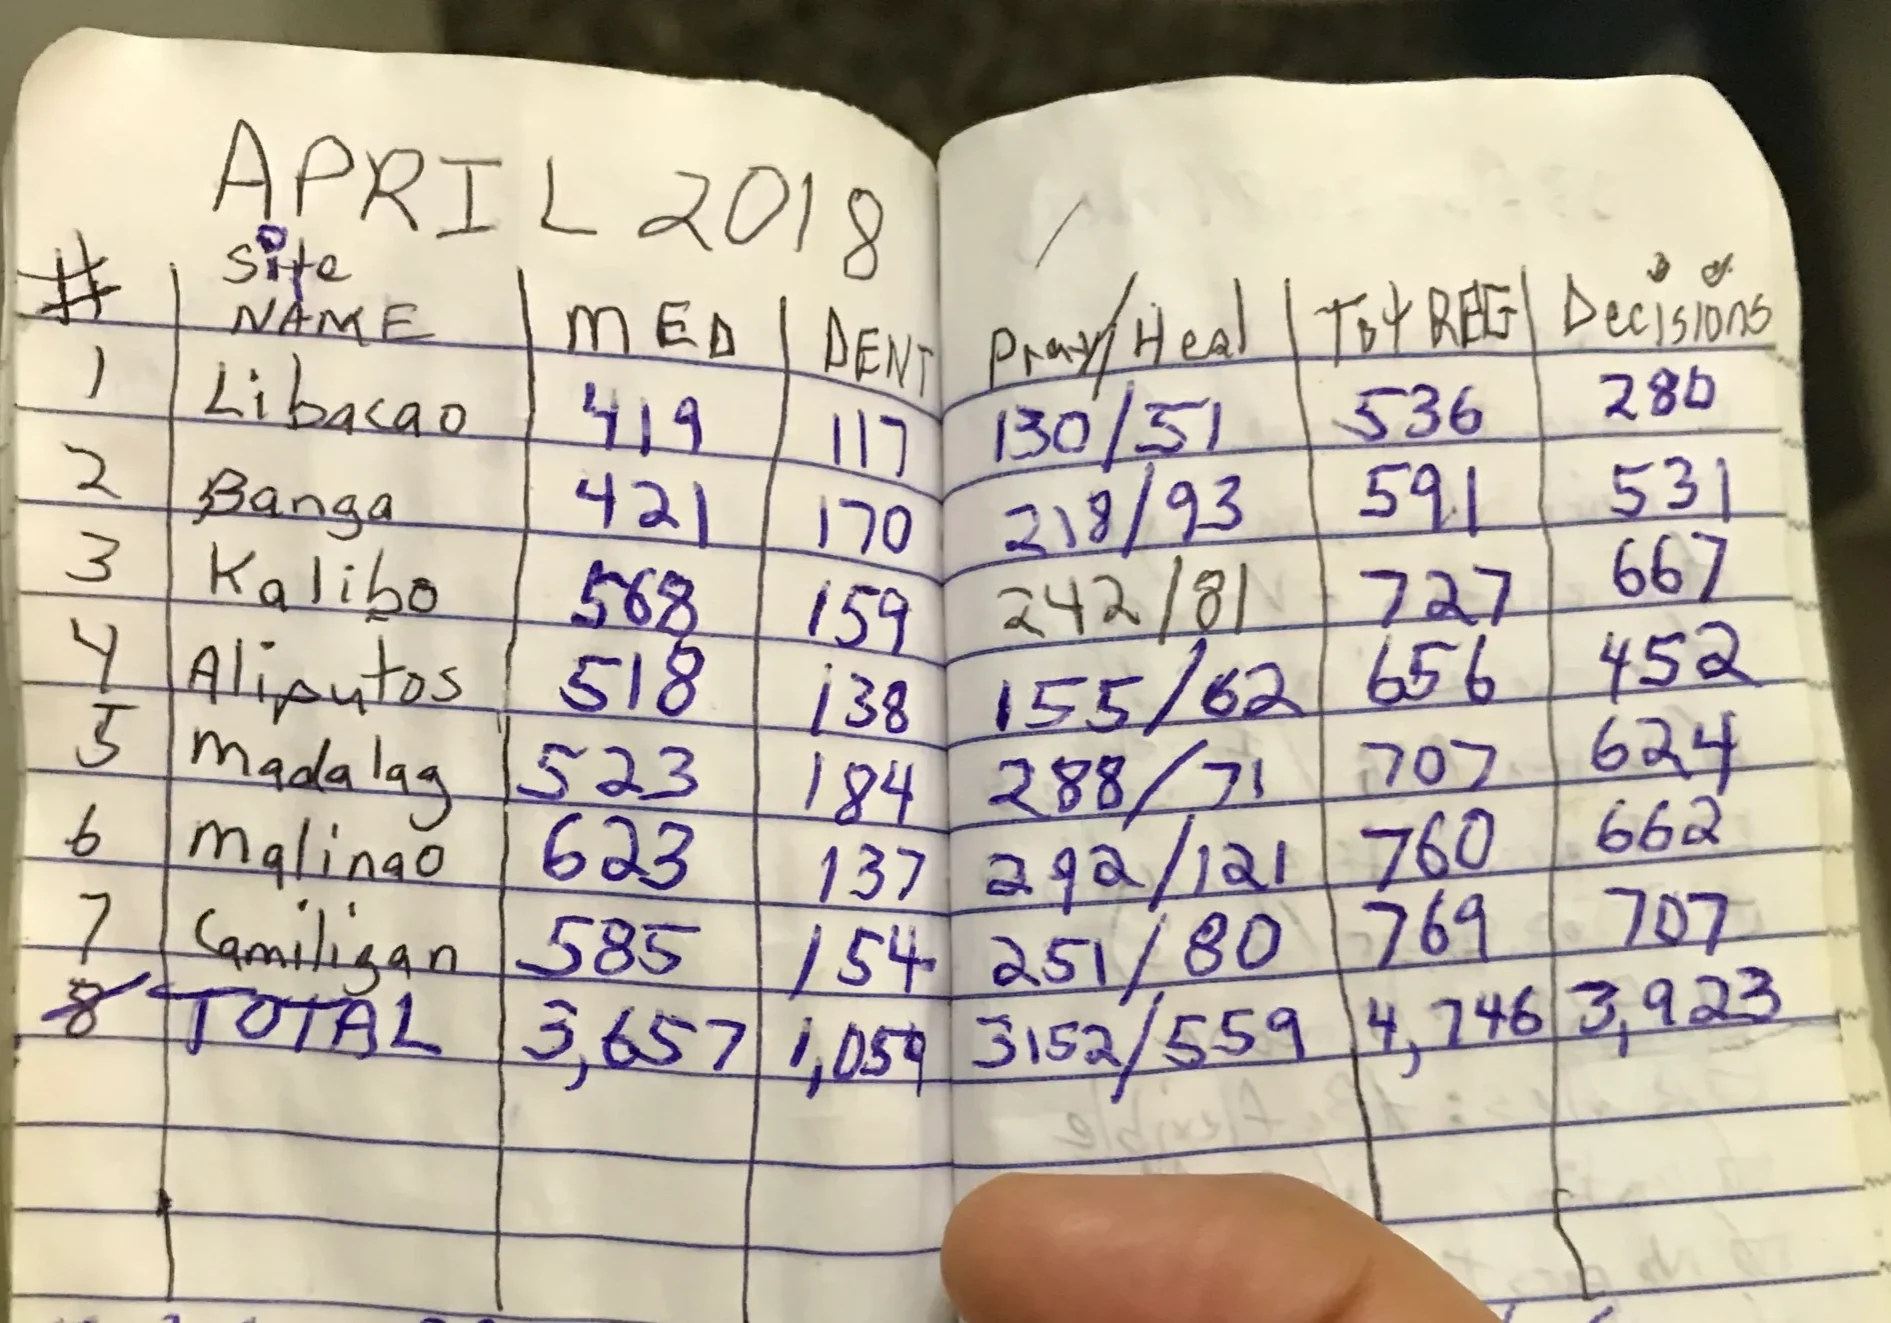 APRIL 2018
# Site NAME MED DENT Pray/Heal Tot REG Decisions
1 Libacao 419 117 130/51 536 280
2 Banga 421 170 218/93 591 531
3 Kalibo 568 159 242/81 727 667
4 Aliputos 518 138 155/62 656 452
5 Madalag 523 184 288/71 707 624
6 Malinao 623 137 292/121 760 662
7 Camiligan 585 154 251/80 769 707
8 TOTAL 3,657 1,059 3152/559 4,746 3,923